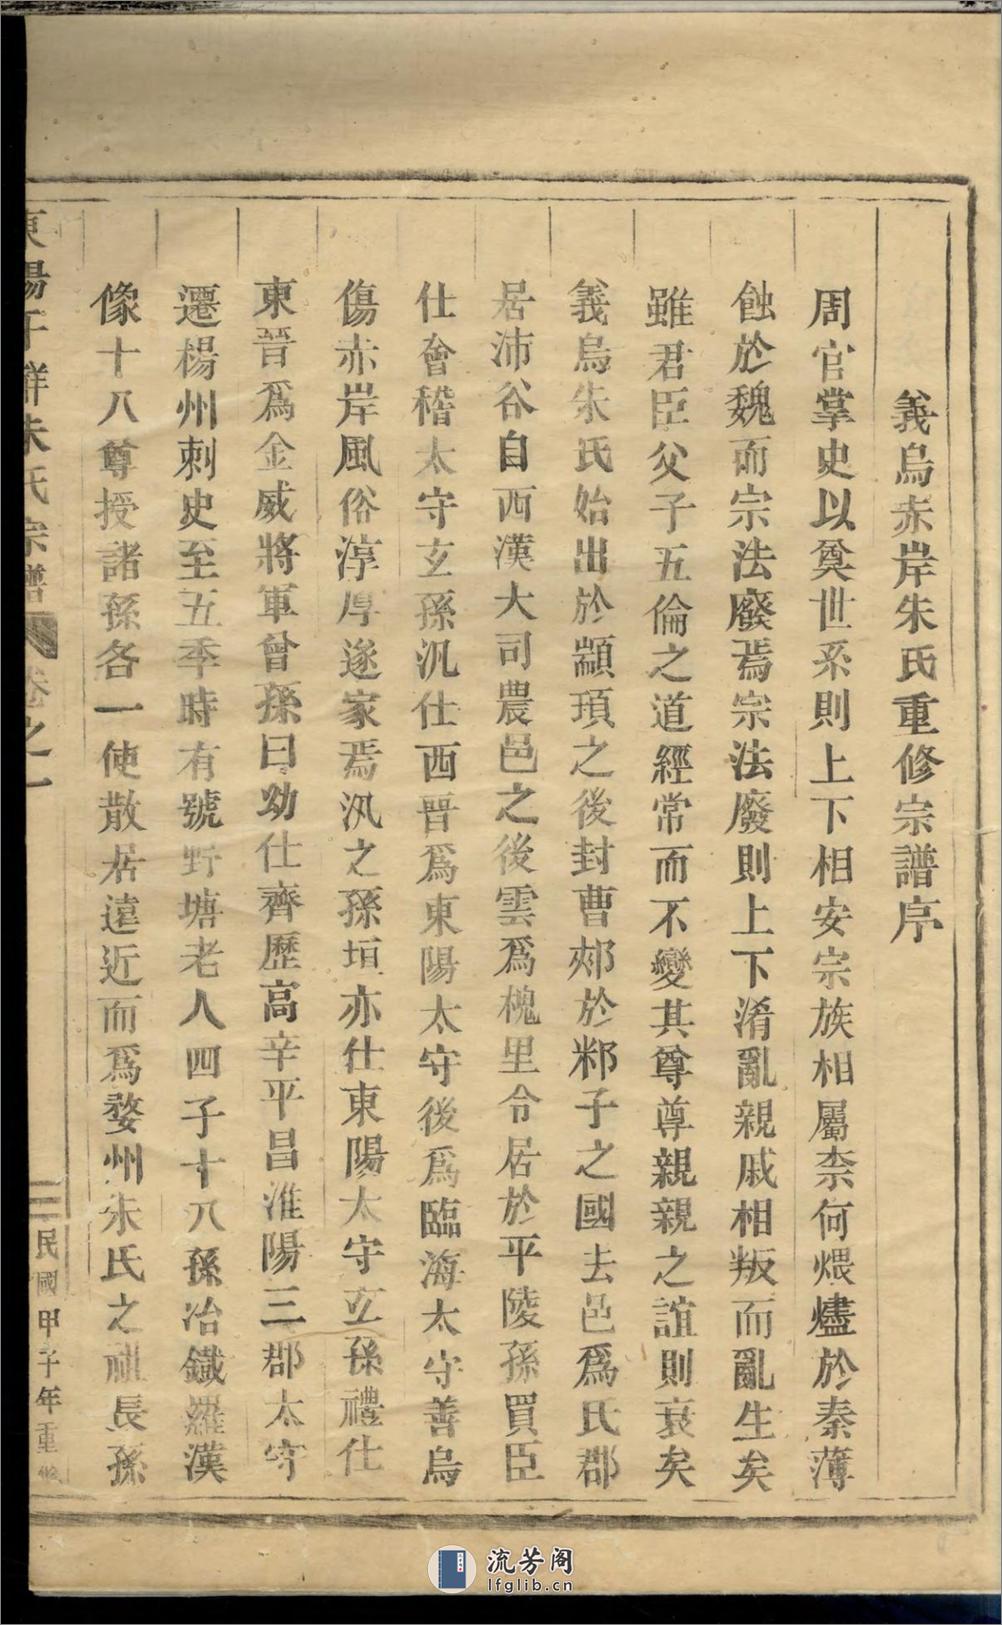 義烏赤岸朱氏重修宗譜序
周官掌史以奠世系則上下相安宗族相屬柰何煨燼於秦薄
蝕於魏而宗法廢焉宗法廢則上下淆亂親戚相叛而亂生矣
雖君臣父子五倫之道經常而不變其尊尊親親之誼則衰矣
義烏朱氏始出於顓頊之後封曹邾於邾子之國去邑爲氏郡
居沛谷自西漢大司農邑之後雲爲槐里令居於平陵孫買臣
仕會稽太守玄孫汎仕西晉爲東陽太守後爲臨海太守善烏
傷赤岸風俗淳厚遂家焉汎之孫垣亦仕東陽太守玄孫禮仕
東晉爲金威將軍曾孫曰幼仕齊歷高辛平昌淮陽三郡太守
遷楊州刺史至五季時有號野塘老人四子十八孫冶鐵羅漢
像十八尊授諸孫各一使散居遠近而爲婺州朱氏之祖長孫
東陽千祥朱氏宗譜 卷之一
二 民國甲子年重修
流芳阁
lfglib.cn